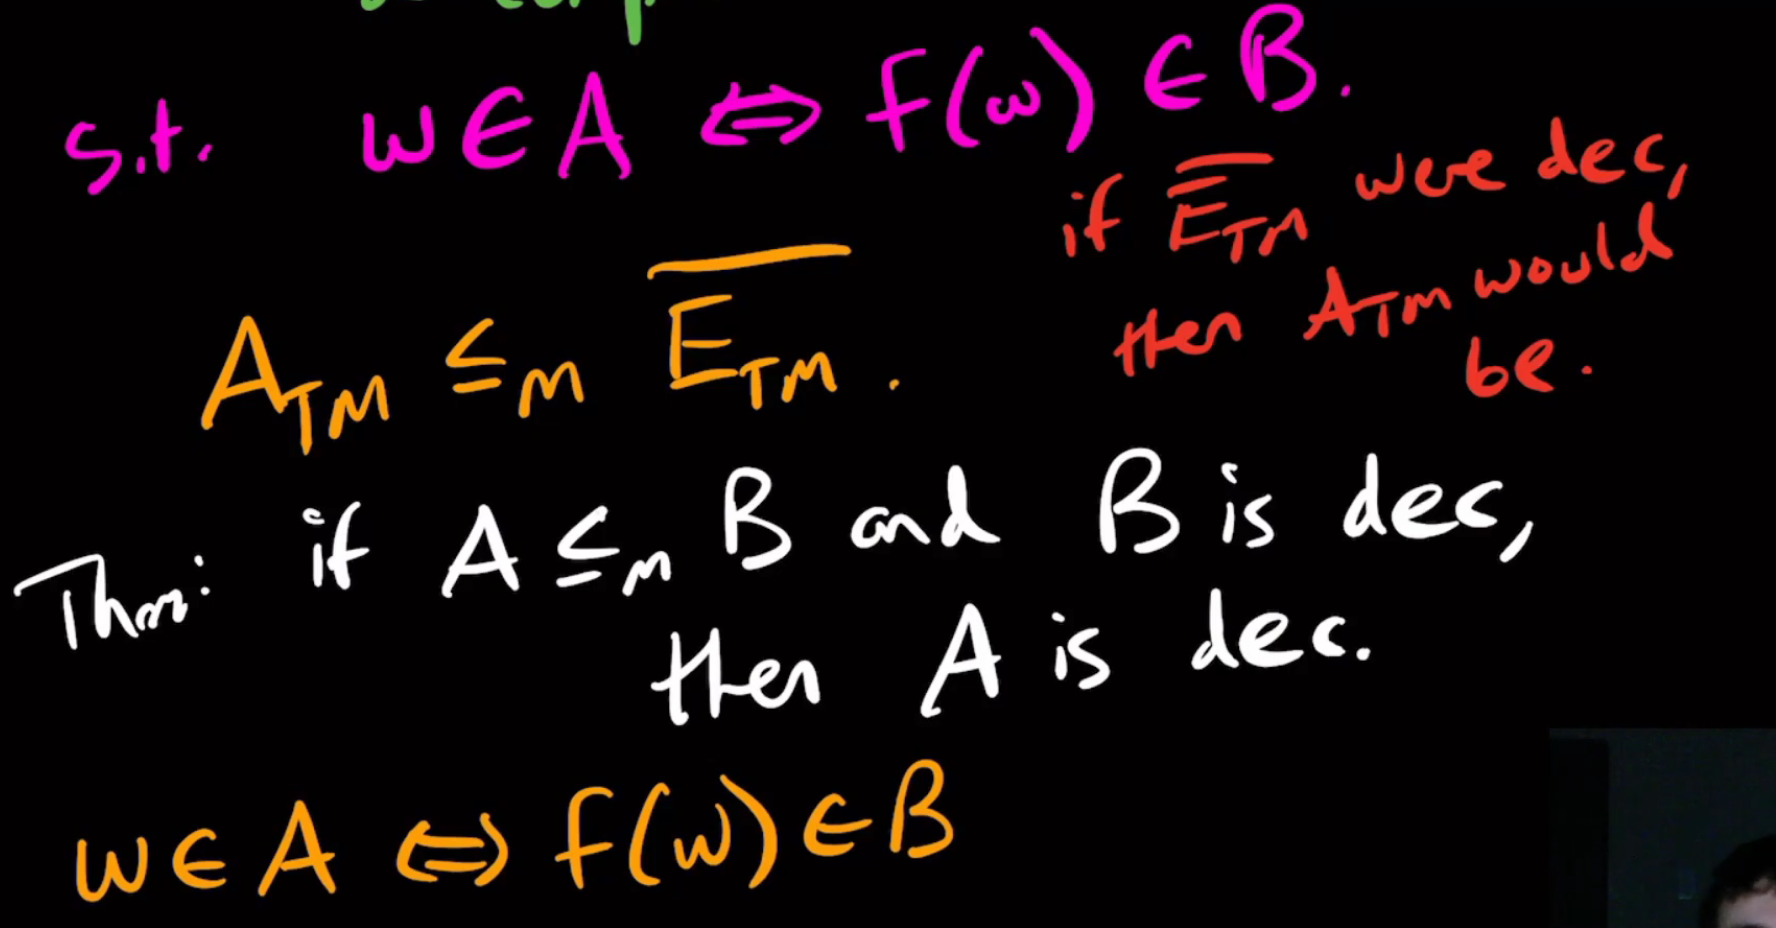 s.t. w∈A ⇔ f(w) ∈ B.
if \overline{E_{TM}} were dec,
then A_{TM} would
be.
A_{TM} ≤_m \overline{E_{TM}}.
Thm: if A ≤_m B and B is dec,
then A is dec.
w∈A ⇔ f(w)∈B